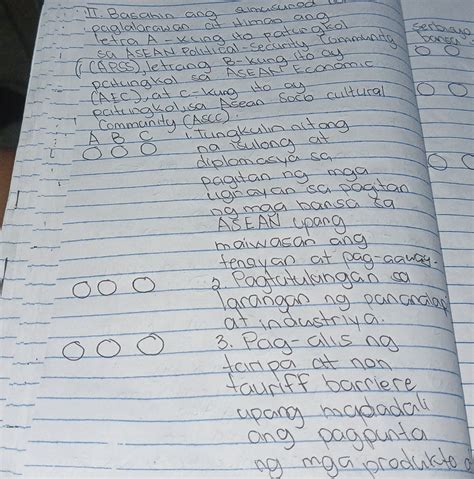 II. Basahin ang sumusunod
paglalarawan at itiman ang
letra A kung ito patungkol
sa ASEAN Political-security Community
(APCS), letrang B-kung ito ay
patungkol sa ASEAN Economic
(AEC), at C-kung ito ay
patungkol isa Asean Socio cultural
Community (ASCC).
A B C 1. Tungkulin nitong
na isulong at
diplomasya sa
pagitan ng mga
ugnayan sa pagitan
ng mga bansa sa
ASEAN upang
maiwasan ang
tensyan at pag-aaway.
2. Pagtutulungan sa
larangan ng pananalapi
at industriya.
3. Pag-alis ng
taripa at non
tauriff barriere
upang mapadali
ang pagpunta
ng mga produkto